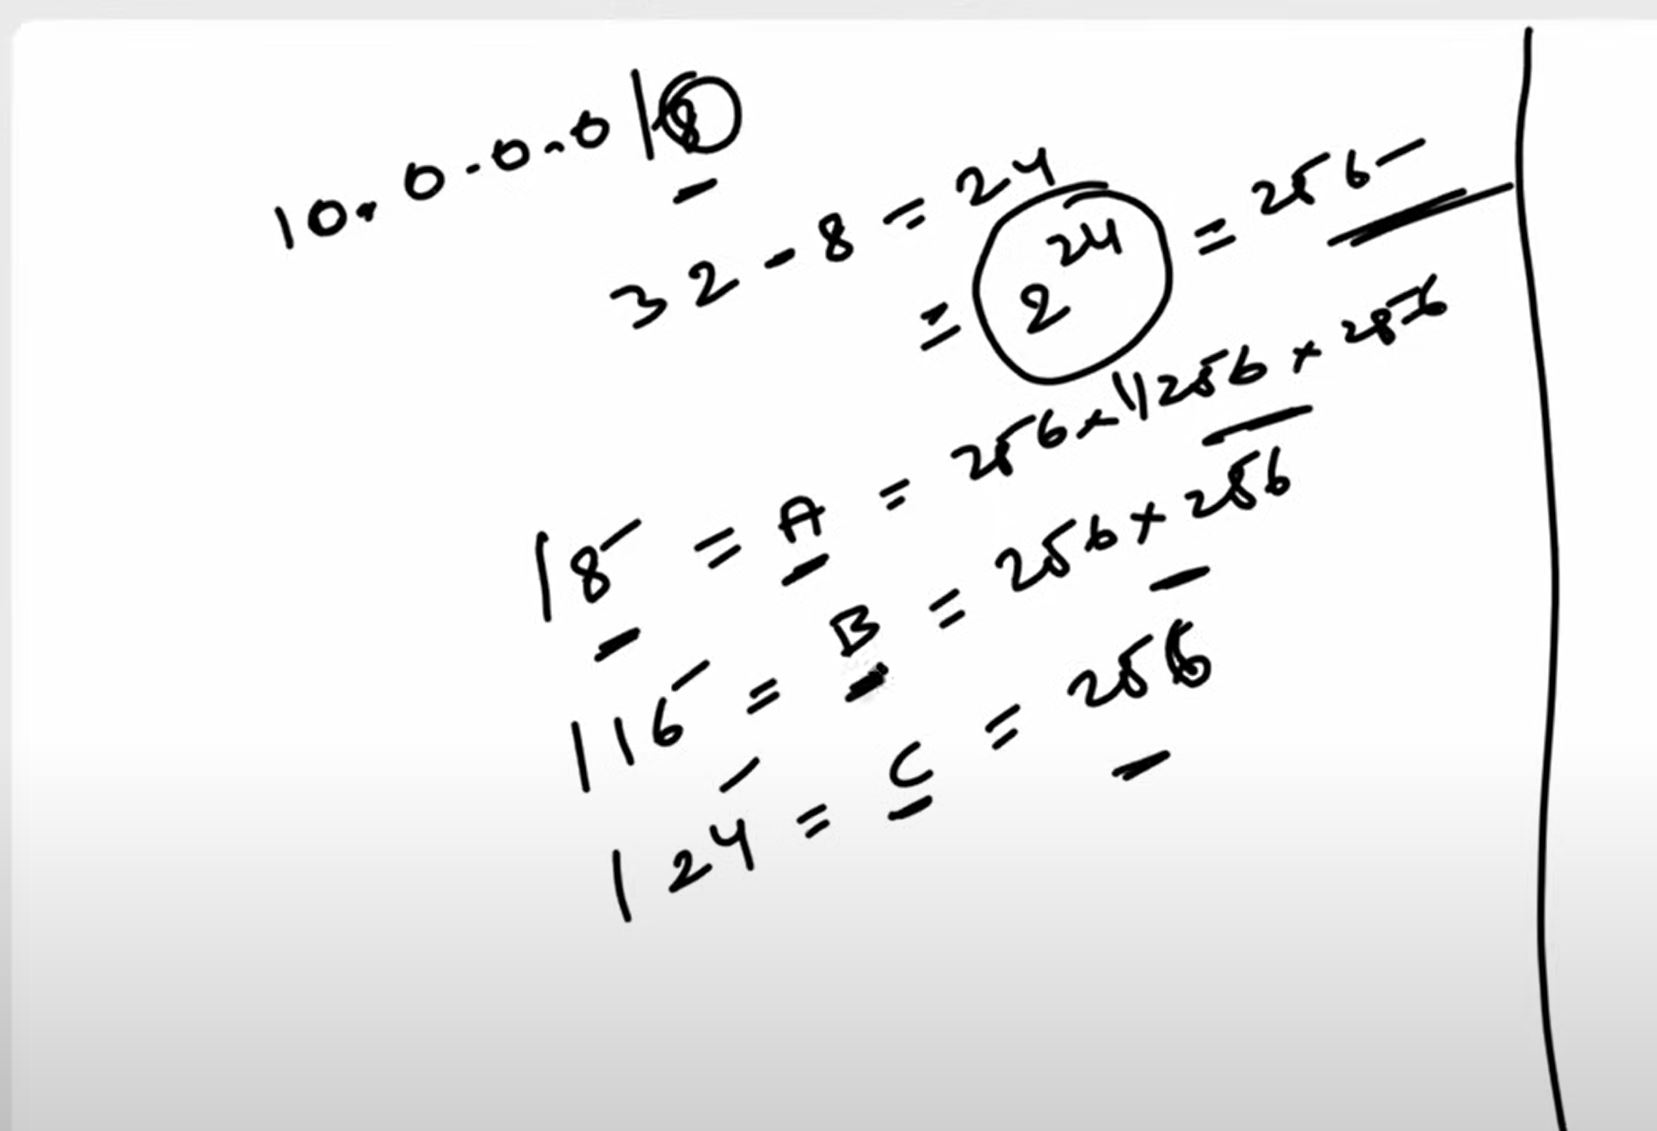 10.0.0.0/8
32 - 8 = 24
= 2^24 = 256
/8 = A = 256 x 256 x 256
/16 = B = 256 x 256
/24 = C = 256